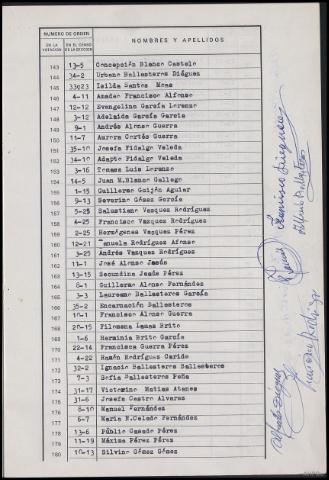 NUMERO DE ORDEN
EN LA VOTACIÓN
EN EL CENSO DE LA SECCION
NOMBRES Y APELLIDOS
143 13-5 Concepción Blanco Castelo
144 34-2 Urbano Ballesteros Diéguez
145 Isilda Santos
146 4-11 Amadeo Francisco Alfonso
147 12-12 Evangelina García Lorenzo
148 3-12 Adelaida García García
149 9-1 Andrés Alonso Guerra
150 11-7 Aurora Cortés Guerra
151 35-10 Josefa Fidalgo Veleda
152 34-10 Adapto Fidalgo Veleda
153 3-16 Tomasa Luis Lorenzo
154 14-5 Juan M.Blanco Gallego
155 1-15 Guillermo Guijón Aguiar
156 9-13 Severino Gómez García
157 5-25 Salustiano Vazquez Rodríguez
158 4-25 Francisco Vazquez Rodríguez
159 2-25 Hermógenes Vazquez Pérez
160 12-21 Manuela Rodríguez Afonso
161 3-25 Andrés Vazquez Rodríguez
162 11-1 José Alonso Jesús
163 13-15 Secundina Jesús Pérez
164 8-1 Guillermo Alonso Fernández
165 3-3 Laureano Ballesteros García
166 35-2 Encarnación Ballesteros
167 10-1 Francisco Alonso Guerra
168 20-15 Filomena Lamas Brito
169 1-6 Herminia Brito García
170 22-14 Francisca Guerra Pérez
171 4-22 Ramón Rodríguez Caride
172 32-2 Ignacio Ballesteros Ballesteros
173 7-3 Sofía Ballesteros Peña
174 31-17 Victorino Matías Atanes
175 31-6 Josefa Castro Alvarez
176 8-10 Manuel Fernández
177 6-7 Maria N.Celado Fernández
178 13-6 Públio Casado Pérez
179 11-19 Máxima Pérez Pérez
180 10-13 Silvino Gómez Gómez